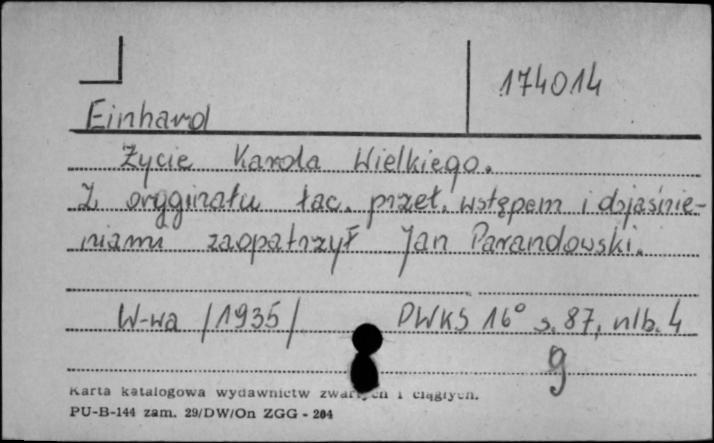 174014
Einhard
Życie Karola Wielkiego.
Z oryginału łac. przeł. wstępem i objaśnie-
niami zaopatrzył Jan Parandowski.
W-wa /1935/ DWKS 16° s. 87, nlb. 4
g
Karta katalogowa wydawnictw zwartych i ciągłych.
PU-B-144 zam. 29/DW/On ZGG - 204